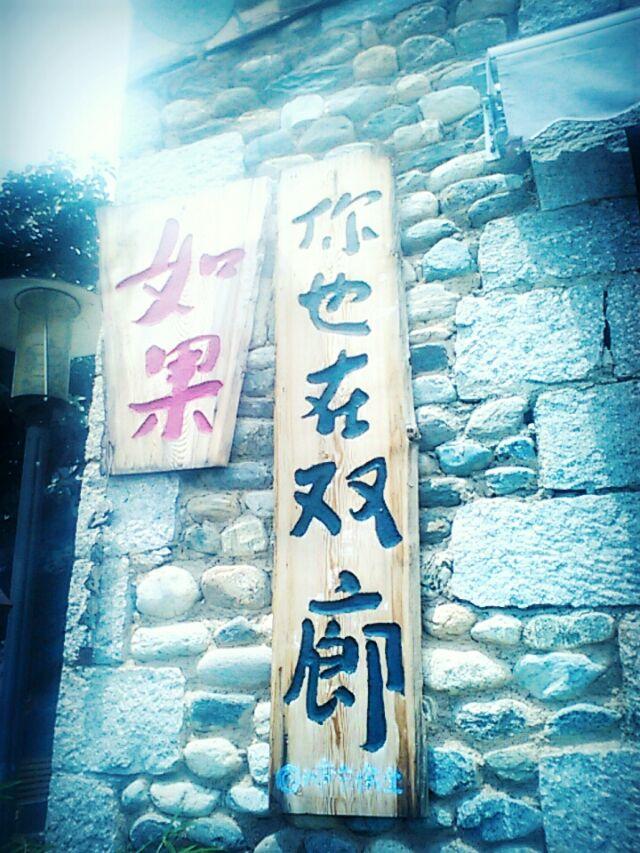 如果
你也在双廊